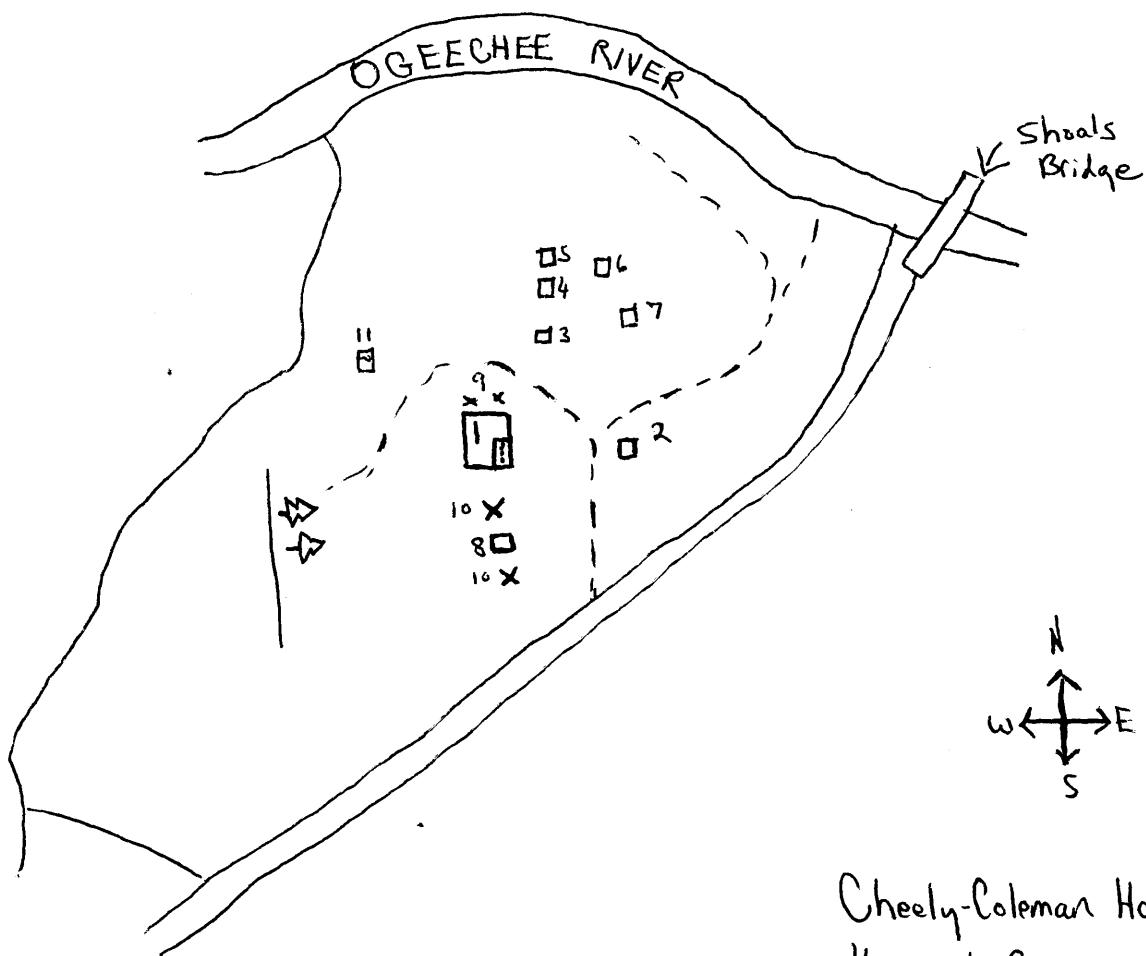 OGEECHEE RIVER
Shoals
Bridge
5
6
4
7
3
11
9
x x
1
2
10 X
8
10 X
N
W E
S
Cheely-Coleman